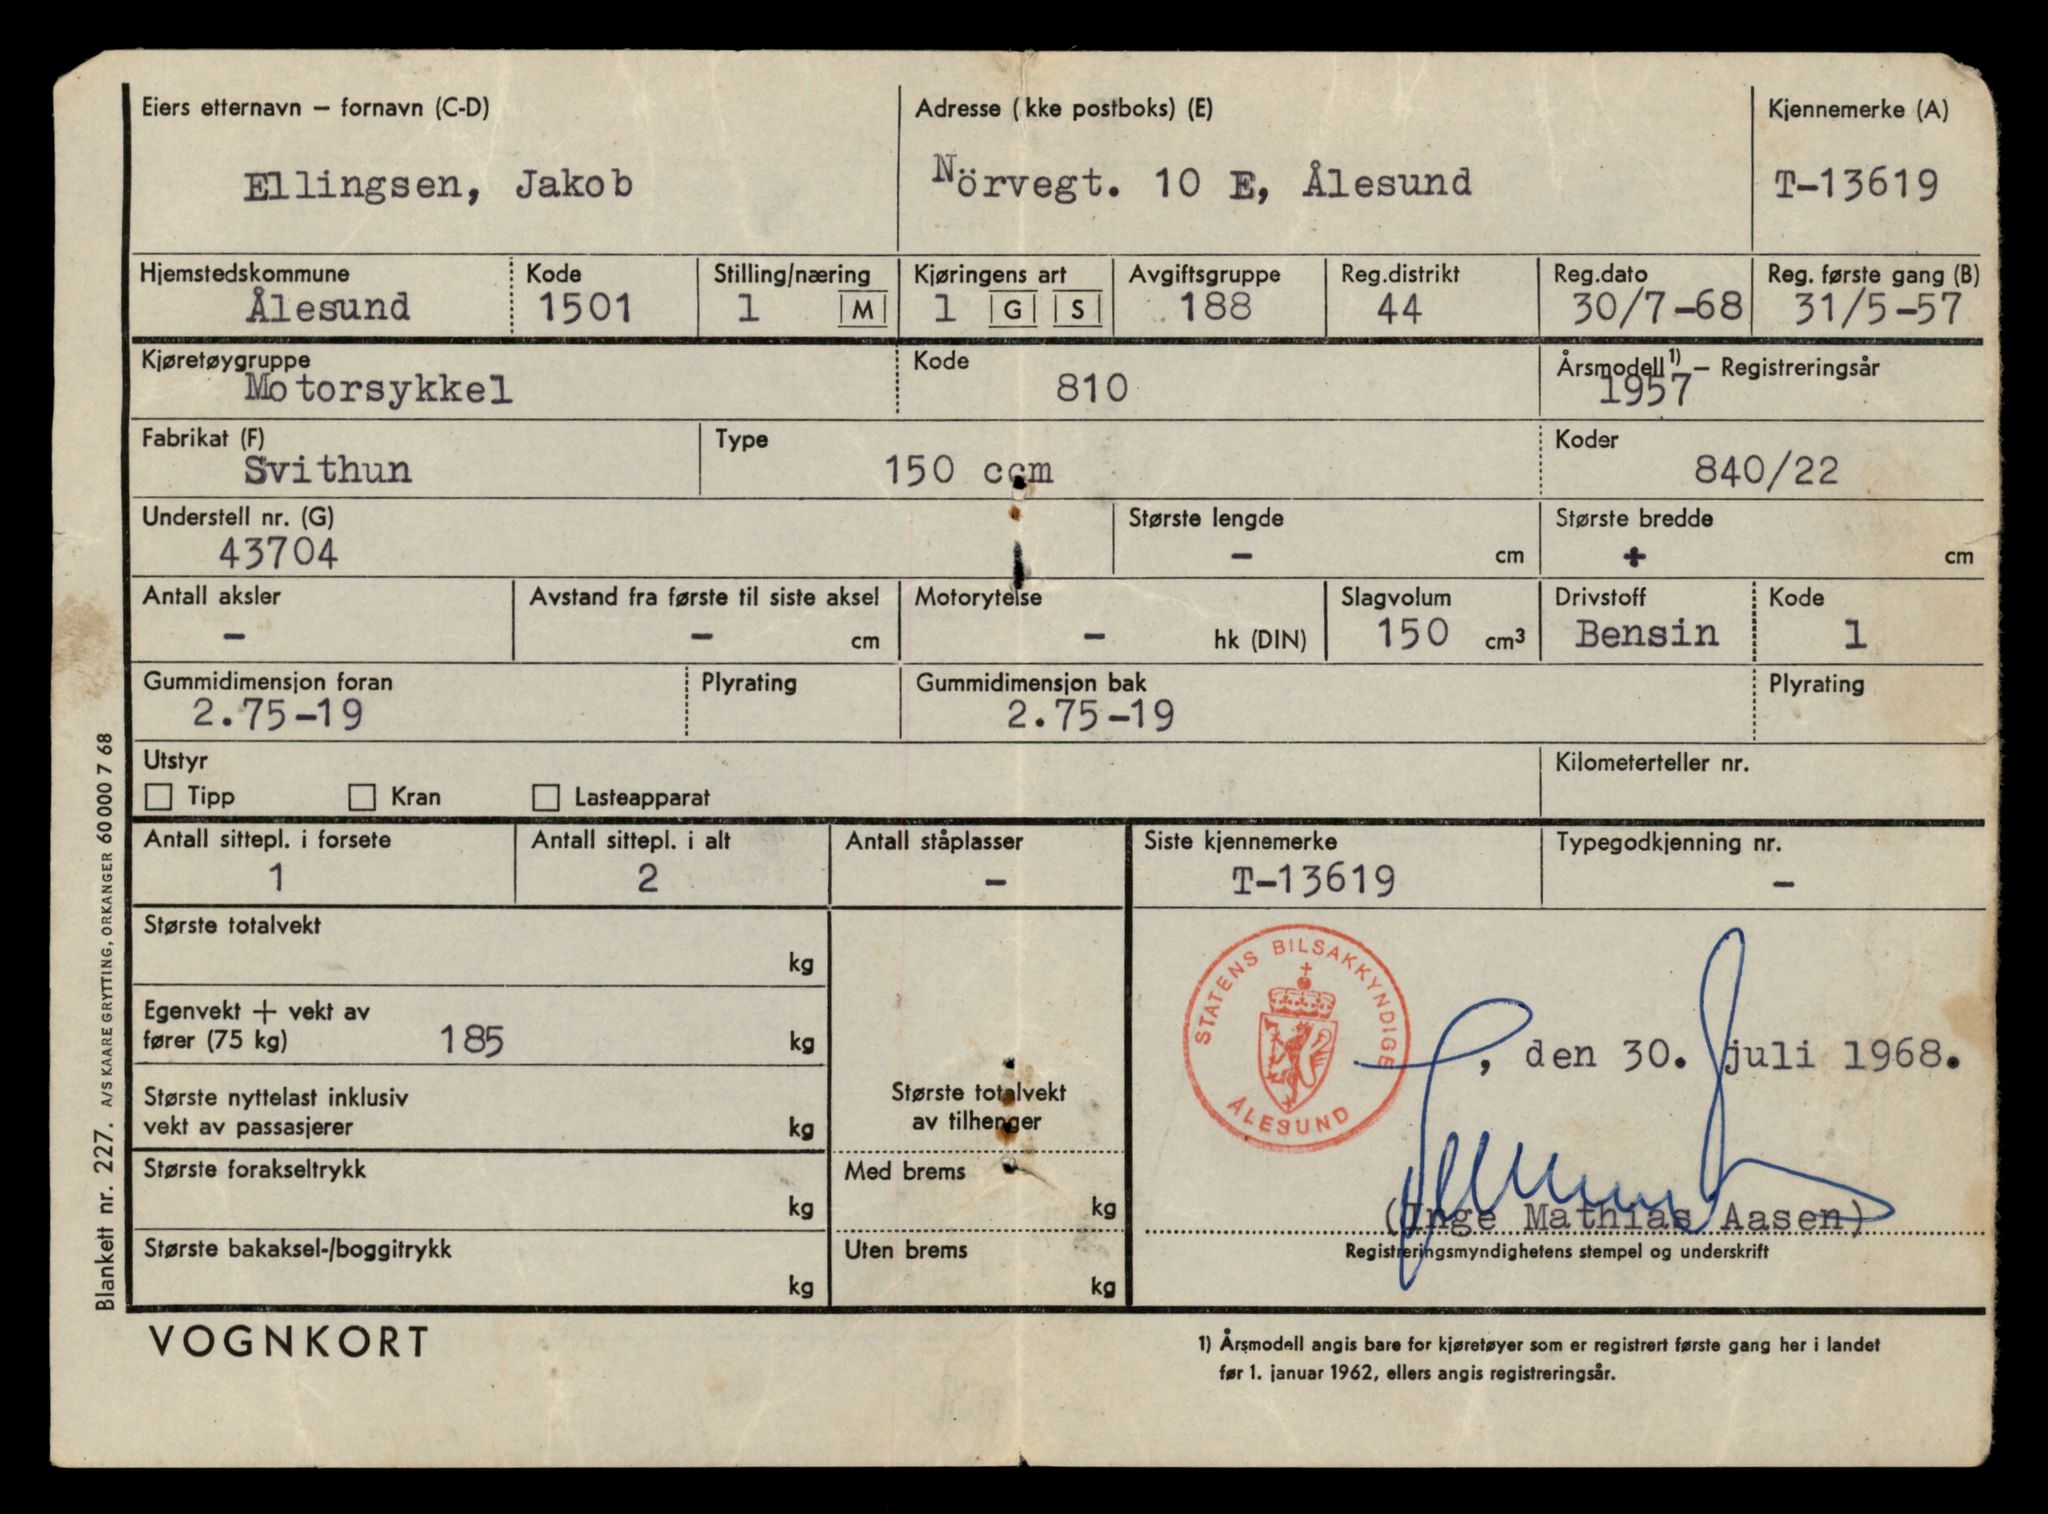 Eiers etternavn – fornavn (C-D)
Adresse (kke postboks) (E)
Kjennemerke (A)
Ellingsen, Jakob
Nörvegt. 10 E, Ålesund
T-13619
Hjemstedskommune
Kode
Stilling/næring
Kjøringens art
Avgiftsgruppe
Reg.distrikt
Reg.dato
Reg. første gang (B)
Ålesund
1501
1 M
1 G S
188
44
30/7-68
31/5-57
Kjøretøygruppe
Kode
Årsmodell 1) – Registreringsår
Motorsykkel
810
1957
Fabrikat (F)
Type
Koder
Svithun
150 ccm
840/22
Understell nr. (G)
Største lengde
Største bredde
43704
– cm
+ cm
Antall aksler
Avstand fra første til siste aksel
Motorytelse
Slagvolum
Drivstoff
Kode
–
– cm
– hk (DIN)
150 cm³
Bensin
1
Gummidimensjon foran
Plyrating
Gummidimensjon bak
Plyrating
2.75-19
2.75-19
Utstyr
Kilometerteller nr.
Tipp
Kran
Lasteapparat
Antall sittepl. i forsete
Antall sittepl. i alt
Antall ståplasser
Siste kjennemerke
Typegodkjenning nr.
1
2
–
T-13619
–
Største totalvekt
kg
Egenvekt + vekt av
fører (75 kg) 185 kg
Største nyttelast inklusiv
vekt av passasjerer kg
Største forakseltrykk
kg
Største bakaksel-/boggitrykk
kg
Største totalvekt
av tilhenger
Med brems
kg
Uten brems
kg
STATENS BILSAKKYNDIGE
ÅLESUND
, den 30. juli 1968.
(Inge Mathias Aasen)
Registreringsmyndighetens stempel og underskrift
VOGNKORT
1) Årsmodell angis bare for kjøretøyer som er registrert første gang her i landet
før 1. januar 1962, ellers angis registreringsår.
Blankett nr. 227. A/S KAARE GRYTTING, ORKANGER 60 000 7 68